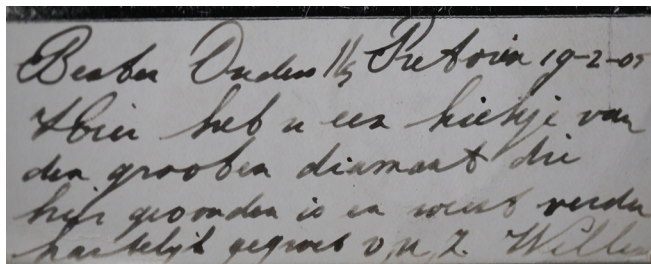 Beste Ouders Pretoria 19-2-05
Hier heb u een kiekje van
den grooten diamant die
hier gevonden is en weest verder
hartelijk gegroet v. u. Z. Willem